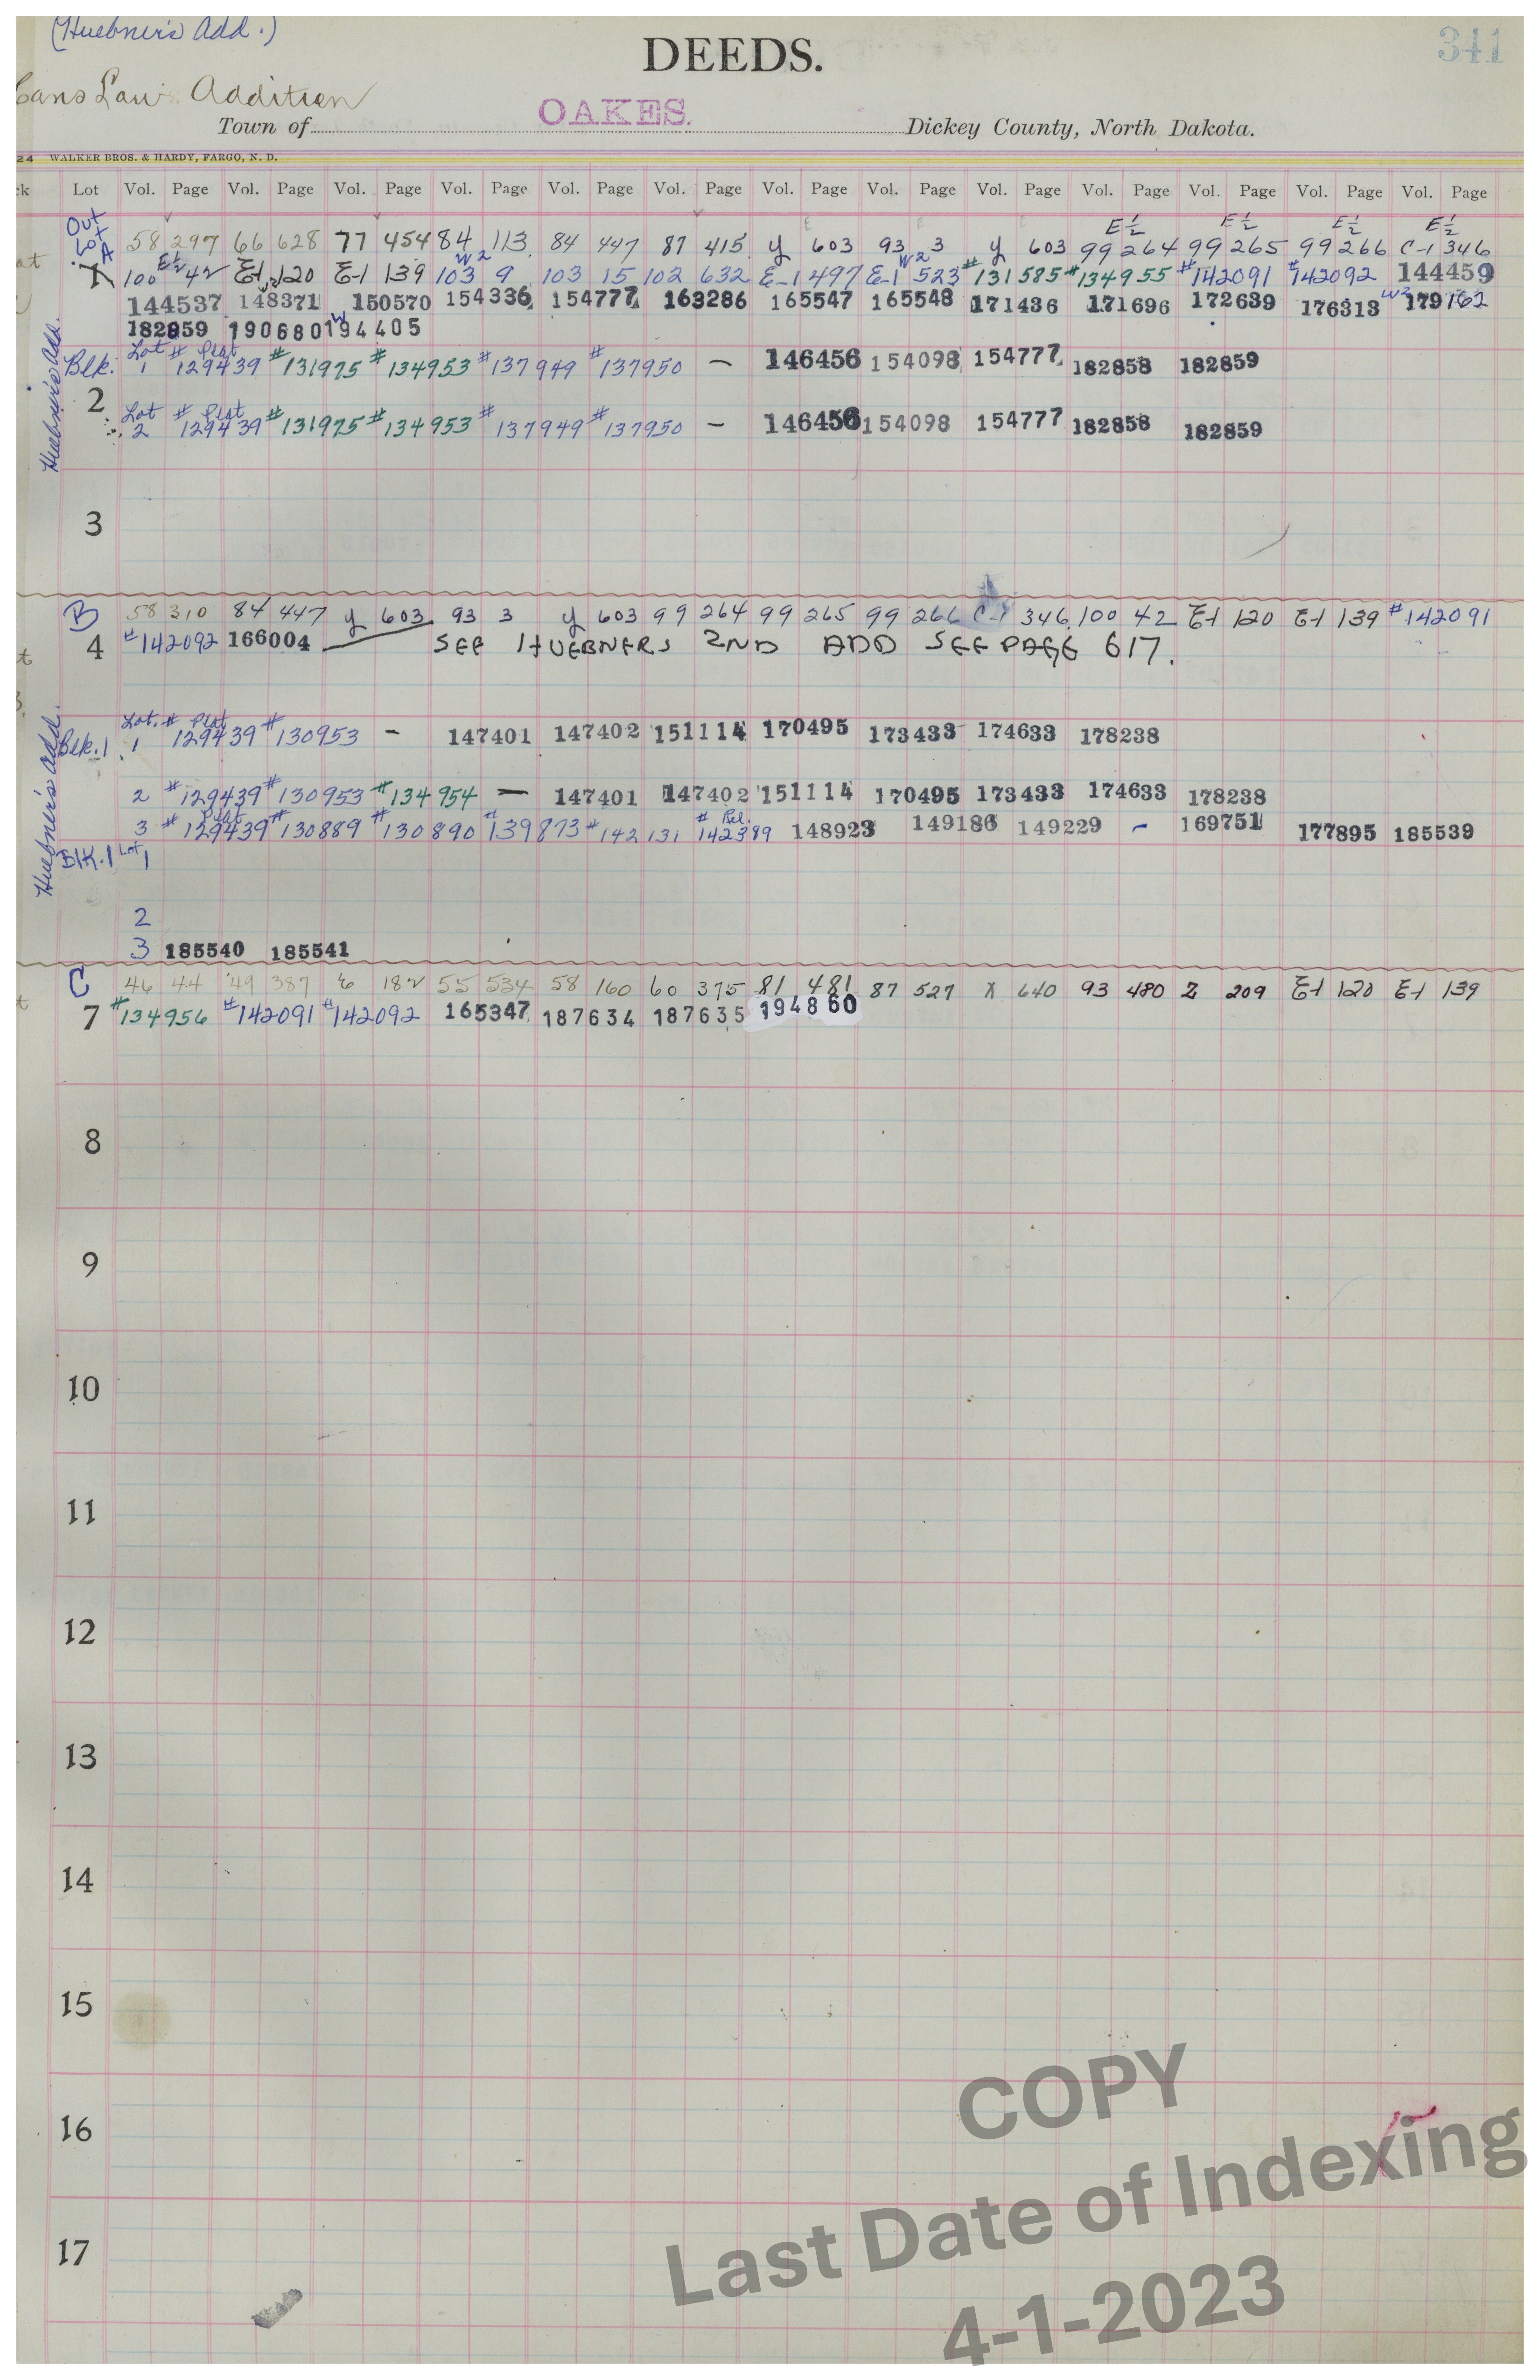 (Huebner's Add.)
DEEDS.
341
Addition
Town of OAKES. Dickey County, North Dakota.
24 WALKER BROS. & HARDY, FARGO, N. D.
ck Lot Vol. Page Vol. Page Vol. Page Vol. Page Vol. Page Vol. Page Vol. Page Vol. Page Vol. Page Vol. Page Vol. Page Vol. Page Vol. Page
Out Lot A
E½ E½ E½ E½
58 297 66 628 77 454 84 113 84 447 87 415 y 603 93 3 y 603 99 264 99 265 99 266 C-1 346
E½ W2 W2
1 100 42 E-1 120 E-1 139 103 9 103 15 102 632 E-1 497 E-1 523 #131585 #134955 #142091 #142092 144459
144537 148371 150570 154336 154777 163286 165547 165548 171436 171696 172639 176313 W2 179162
182859 190680 W 194405
Huebner's Add.
Blk. 2
Lot 1 # Plat 129439 #131975 #134953 #137949 #137950 – 146456 154098 154777 182858 182859
Lot 2 # Plat 129439 #131975 #134953 #137949 #137950 – 146456 154098 154777 182858 182859
3
B 58 310 84 447 y 603 93 3 y 603 99 264 99 265 99 266 C-1 346 100 42 E-1 120 E-1 139 #142091
4 #142092 166004 SEE HUEBNERS 2ND ADD SEE PAGE 617.
Huebner's Add.
Blk. 1 Lot 1 # Plat 129439 #130953 – 147401 147402 151114 170495 173433 174633 178238
2 #129439 #130953 #134954 – 147401 147402 151114 170495 173433 174633 178238
3 # Plat 129439 #130889 #130890 #139873 #142131 # Rel. 142389 148923 149186 149229 – 169751 177895 185539
Blk. 1 Lot 1
2
3 185540 185541
C 46 44 49 387 182 55 534 58 160 60 375 81 481 87 527 X 640 93 480 Z 209 E-1 120 E-1 139
7 #134956 #142091 #142092 165347 187634 187635 194860
8
9
10
11
12
13
14
15
16
17
COPY
Last Date of Indexing
4-1-2023